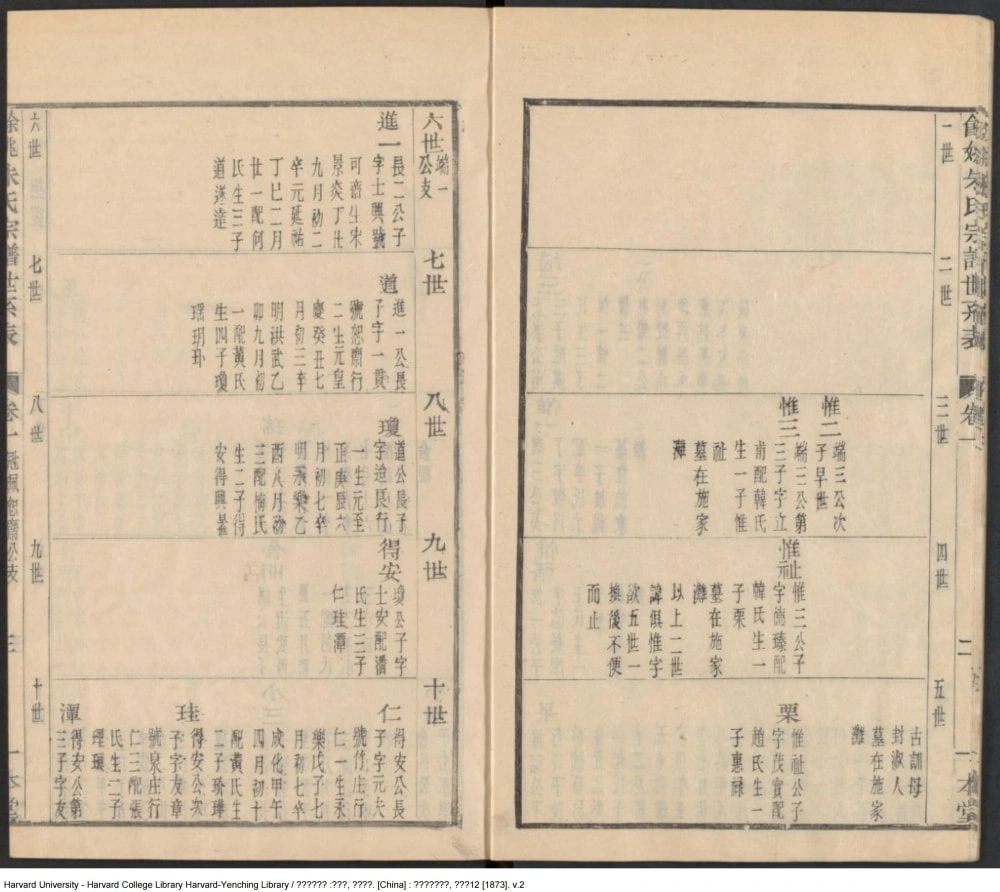 餘姚朱氏宗譜世系表
卷一
二
一本堂
一世
二世
三世
四世
五世
惟二
端三公次
子早世
惟三
端三公第
三子字立
甫配韓氏
生一子惟
祉
墓在施家
灘
惟祉
惟三公子
字德臻配
韓氏生一
子栗
墓在施家
灘
以上二世
諱俱惟字
欲五世一
換後不便
而止
古訓母
封淑人
墓在施家
灘
栗
惟祉公子
字茂實配
趙氏生一
子惠祿
六世
端一
公支
進一
長二公子
字士興號
可齋生宋
景炎丁丑
九月初二
卒元延祐
丁巳二月
廿一配何
氏生三子
道遂達
七世
道
進一公長
子字一貫
號恕齋行
二生元皇
慶癸丑七
月初三卒
明洪武乙
卯九月初
一配黃氏
生四子瓊
瑤玥
八世
瓊
道公長子
字迨民行
一生元至
正庚辰六
月初七卒
明永樂乙
酉八月初
三配梅氏
生二子得
安得興
九世
得安
瓊公子字
士安配潘
氏生三子
仁珪潭
十世
仁
得安公長
子字元夫
號竹庄行
仁一生永
樂戊子七
月初七卒
成化甲午
四月初十
配黃氏生
二子玠璍
珪
得安公次
子字友章
號泉庄行
仁三配張
氏生二子
理環
潭
得安公第
三子字友
六世
七世
八世
九世
十世
餘姚朱氏宗譜世系表
卷一
恕齋公支
三
一本堂
Harvard University - Harvard College Library Harvard-Yenching Library / ?????? :???, ????. [China] : ???????, ???12 [1873]. v.2